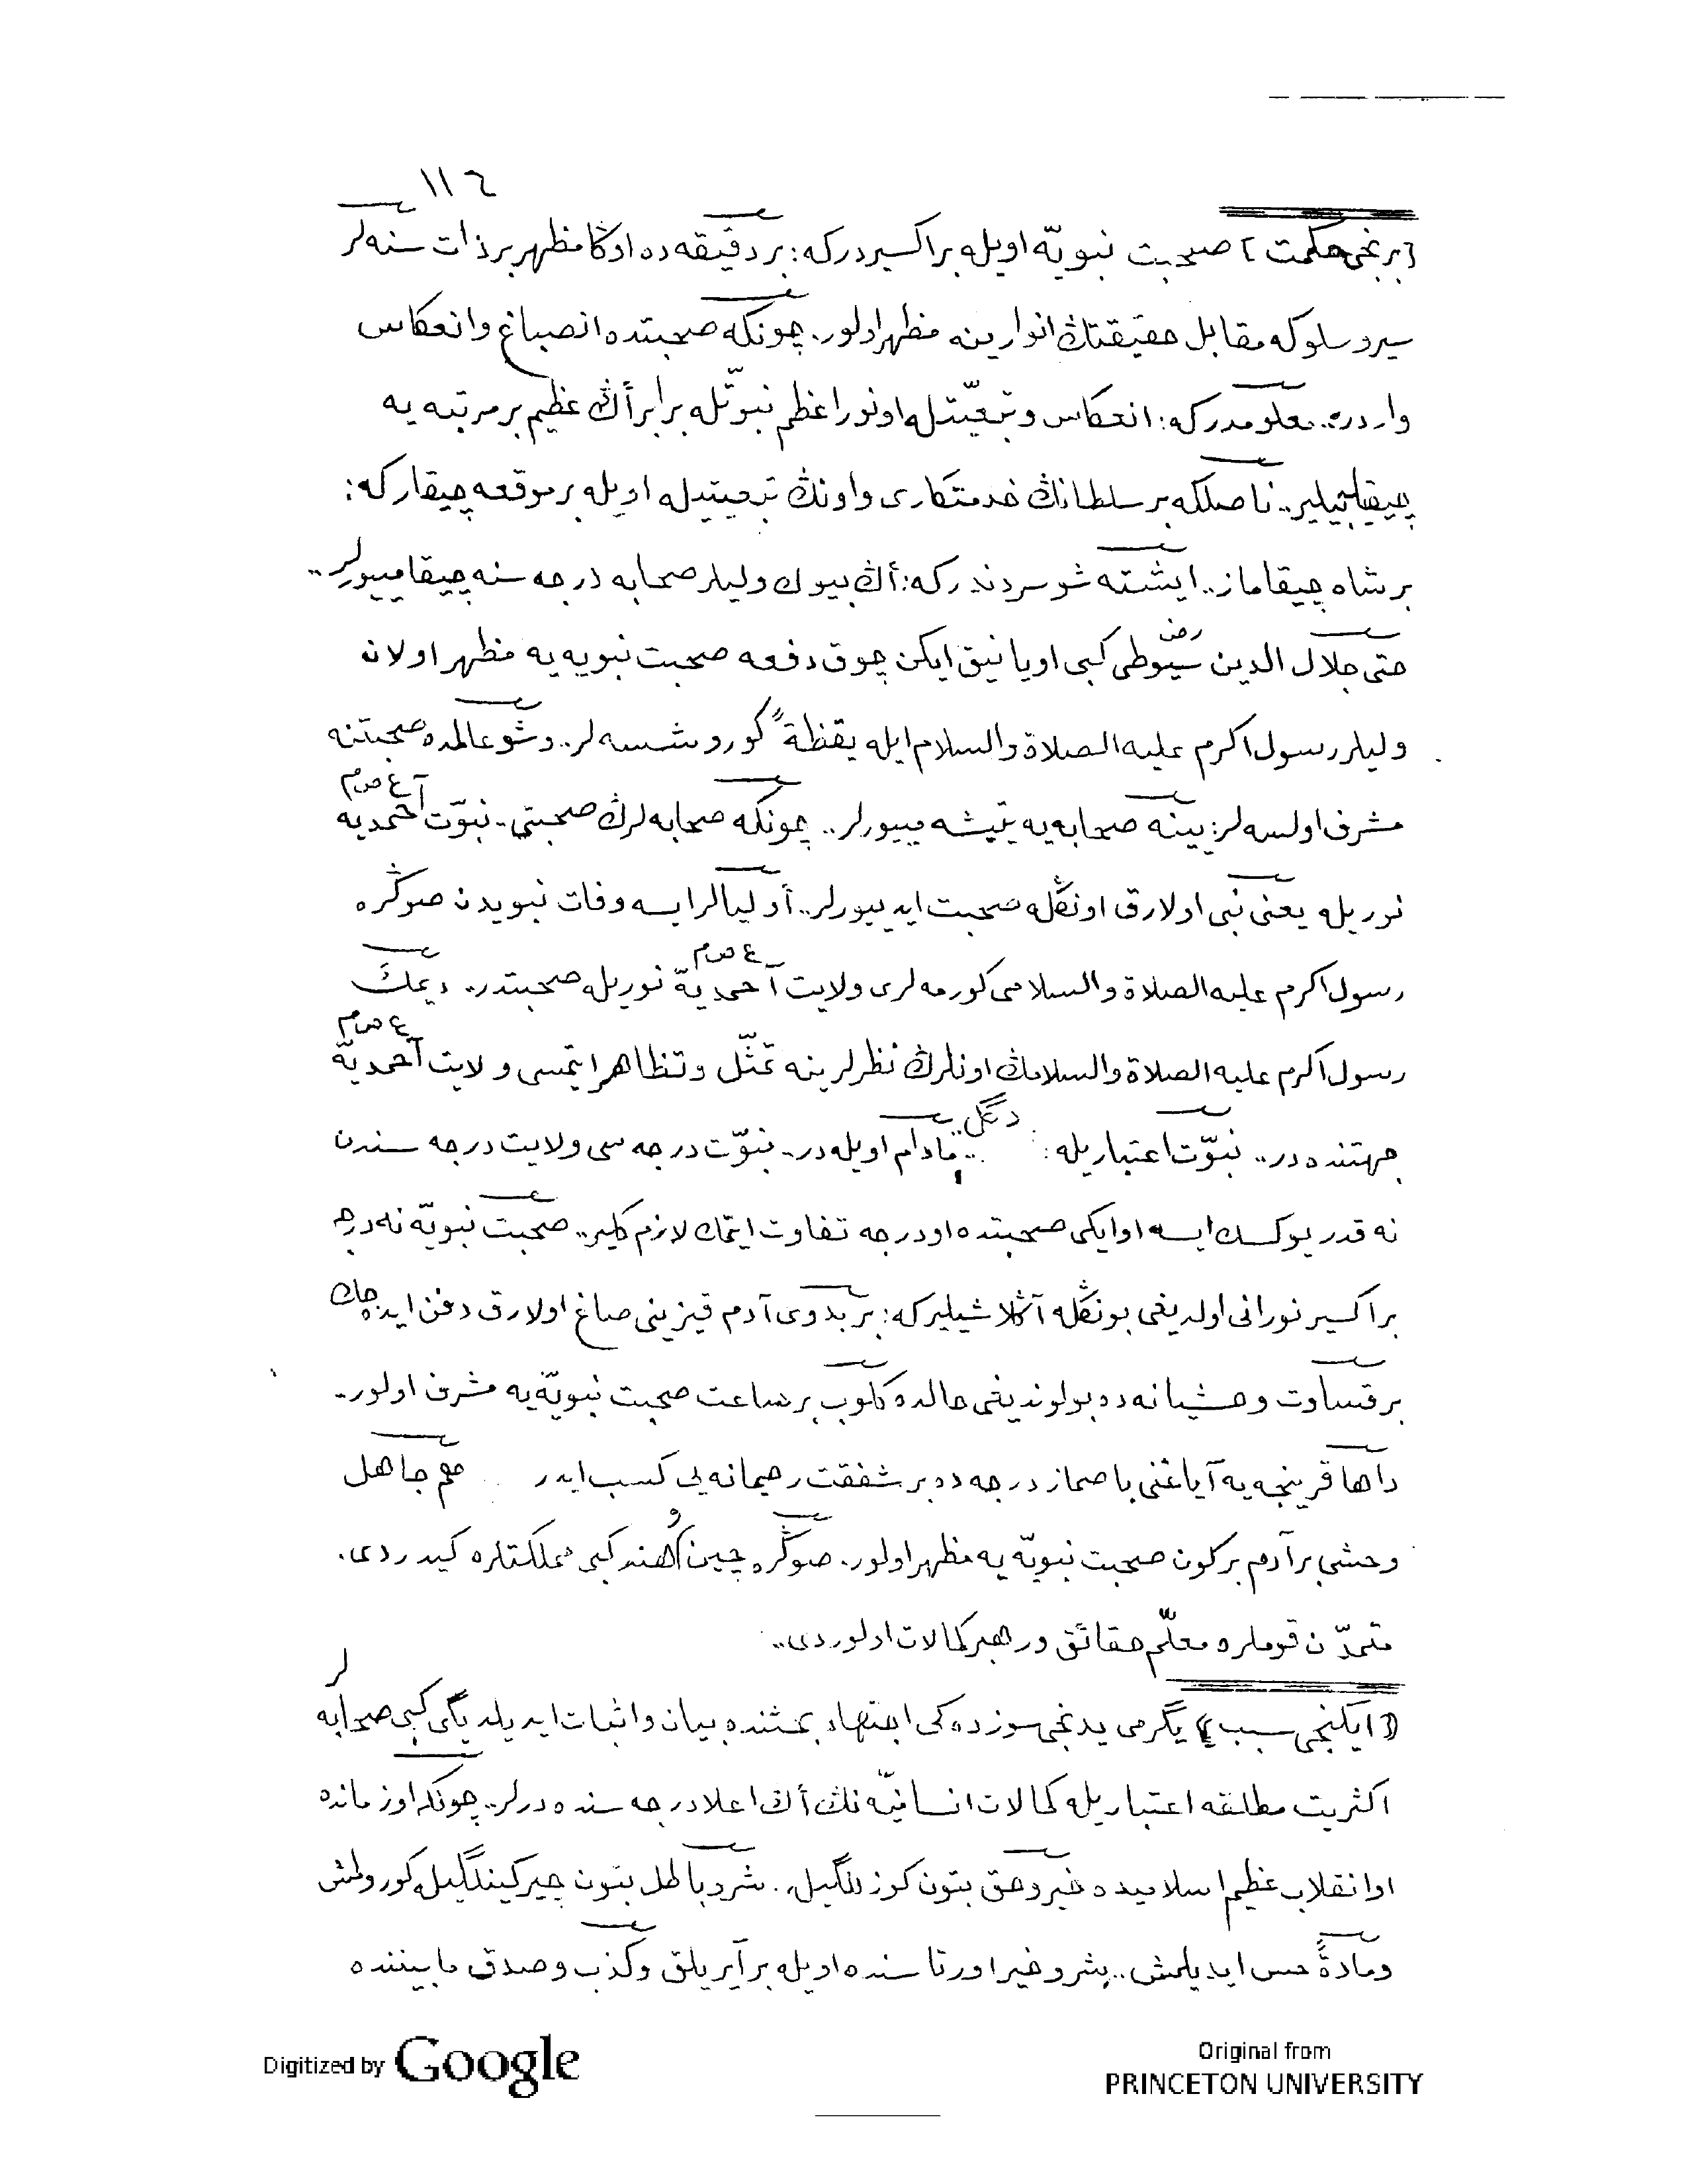 ١١٦
[برنجی حكمت] صحبت نبويّه اويله براكسيردركه: بر دقيقه ده اوڭا مظهر بر ذات سنه لر
سير و سلوكه مقابل حقيقتڭ انوارينه مظهر اولور.. چونكه صحبتده انصباغ و انعكاس
واردر.. معلومدركه: انعكاس و تبعيّتله او نور اعظم نبوّتله برابر أڭ عظيم بر مرتبه يه
چيقابيلير.. ناصلكه بر سلطانڭ خدمتكاری و اونڭ تبعيتيله اويله بر موقعه چيقاركه:
بر شاه چيقاماز.. ايشته شو سردندركه: أڭ بيوك وليلر صحابه درجه سنه چيقاميورلر..
حتی جلال الدين سيوطی رض كبی اويانيق ايكن چوق دفعه صحبت نبويه يه مظهر اولان
وليلر رسول اكرم عليه الصلاة والسلام ايله يقظةً كوروشسه لر.. و شو عالمده صحبتنه
مشرف اولسه لر: يينه صحابه يه يتيشه مييورلر.. چونكه صحابه لرڭ صحبتی.. نبوّت آحمديه ع ص م
نوريله يعنی نبی اولارق اونڭله صحبت ايدييورلر.. أوليالر ايسه وفات نبويدن صوڭره
رسول اكرم عليه الصلاة والسلامی كورمه لری ولايت آحمديّة ع ص م نوريله صحبتدر.. ديمك
رسول اكرم عليه الصلاة والسلامڭ اونلرڭ نظرلرينه تمثّل و تظاهر ايتمسی ولايت آحمديّة ع ص م
جهتنده در.. نبوّت اعتباريله: دگل.. مادام اويله در.. نبوّت درجه سی ولايت درجه سندن
نه قدر يوكسك ايسه او ايكی صحبتده او درجه تفاوت ايتمك لازم كلير.. صحبت نبويّه نه درجه
بر اكسير نورانی اولديغی بونڭله آڭلاشيليركه: بر بدوی آدم قيزينی صاغ اولارق دفن ايده جك
بر قساوت وحشيانه ده بولونديغی حالده كلوب بر ساعت صحبت نبويّه يه مشرف اولور..
داها قرينجه يه آياغنی باصماز درجه ده بر شفقت رحيمانه يی كسب ايدر هم جاهل
وحشی بر آدم بر كون صحبت نبويّه يه مظهر اولور.. صوڭره چين و هند كبی مملكتلره كيدردی.
متمدّن قوملره معلّم حقائق و رهبر كمالات اولوردی..
(ايكنجی سبب) يگرمی يدنجی سوزده كی اجتهاد بحثنده بيان و اثبات ايديلديگی كبی صحابه لر
اكثريت مطلقه اعتباريله كمالات انسانيّه نڭ أڭ اعلا درجه سنده درلر.. چونكه او زمانده
او انقلاب عظيم اسلاميده خير و حق بتون كوزللگيله.. شر و باطل بتون چيركينلگيله كورولمش
و مادةً حس ايديلمش.. شر و خير اورتاسنده اويله بر آيريلق و كذب و صدق مابيننده
Digitized by Google
Original from
PRINCETON UNIVERSITY